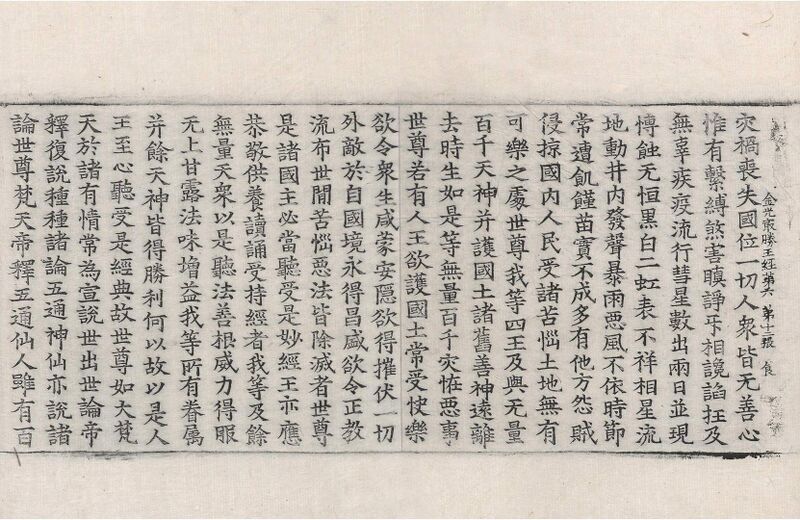 金光最勝王経第六 第十二張 食
灾禍喪失國位一切人衆皆无善心
惟有繫縛煞害瞋諍㸦相讒諂抂及
無辜疾疫流行彗星數出兩日並現
愽蝕无恒黑白二虹表不祥相星流
地動井内發聲暴雨惡風不依時節
常遭飢饉苗實不成多有他方怨賊
侵掠國内人民受諸苦惱土地無有
可樂之處世尊我等四王及與无量
百千天神并護國土諸舊善神遠離
去時生如是等無量百千灾恠惡事
世尊若有人王欲護國土常受快樂
欲令衆生咸蒙安隱欲得摧伏一切
外敵於自國境永得昌盛欲令正教
流布世間苦惱惡法皆除滅者世尊
是諸國主必當聽受是妙經王亦應
恭敬供養讀誦受持經者我等及餘
無量天衆以是聽法善根威力得服
无上甘露法味增益我等所有眷属
并餘天神皆得勝利何以故以是人
王至心聽受是經典故世尊如大梵
天於諸有情常為宣說世出世論帝
釋復說種種諸論五通神仙亦說諸
論世尊梵天帝釋五通仙人雖有百